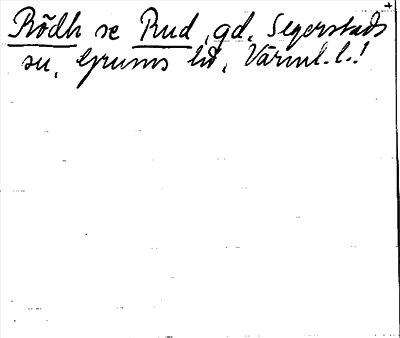 Rödh se Rud, gd, Segerstads
sn, Grums hd, Värml. l.!